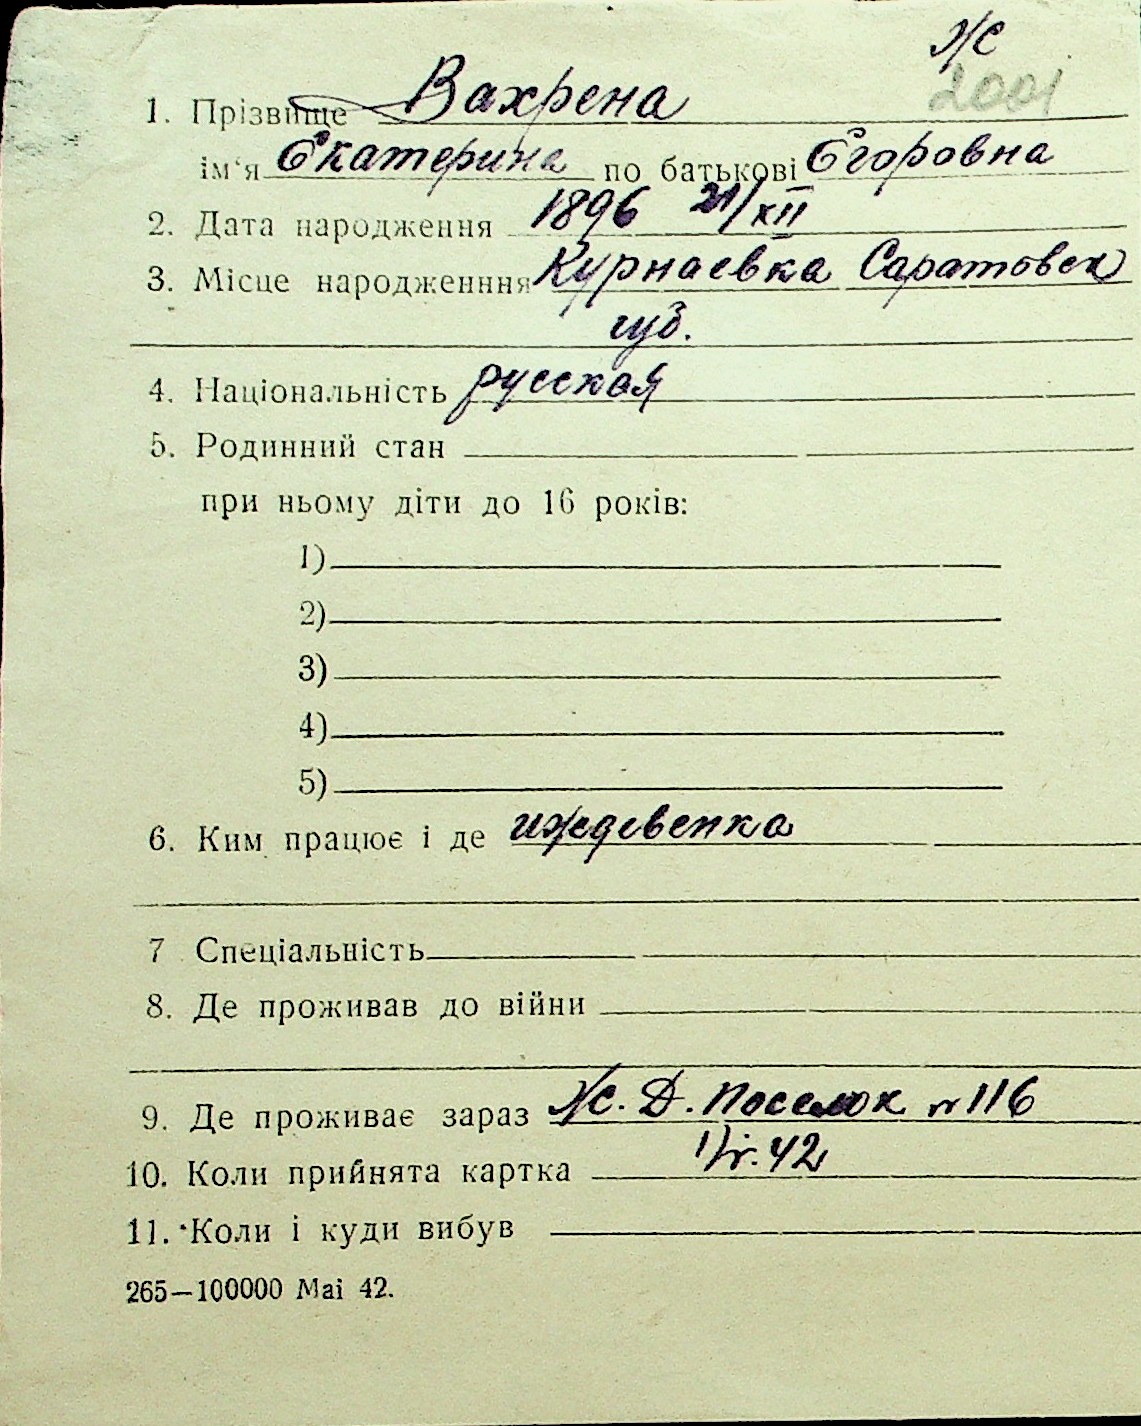 Ж
2001
1. Прізвище Вахрена
ім‘я Екатерина по батькові Єгоровна
2. Дата народження 1896 21/XII
3. Місце народженння Курнаевка Саратовск
губ.
4. Національність русская
5. Родинний стан
при ньому діти до 16 років:
1)
2)
3)
4)
5)
6. Ким працює і де иждевенка
7 Спеціальність
8. Де проживав до війни
9. Де проживає зараз Ж. Д. Поселок № 116
10. Коли прийнята картка 42
11. Коли і куди вибув
265—100000 Mai 42.